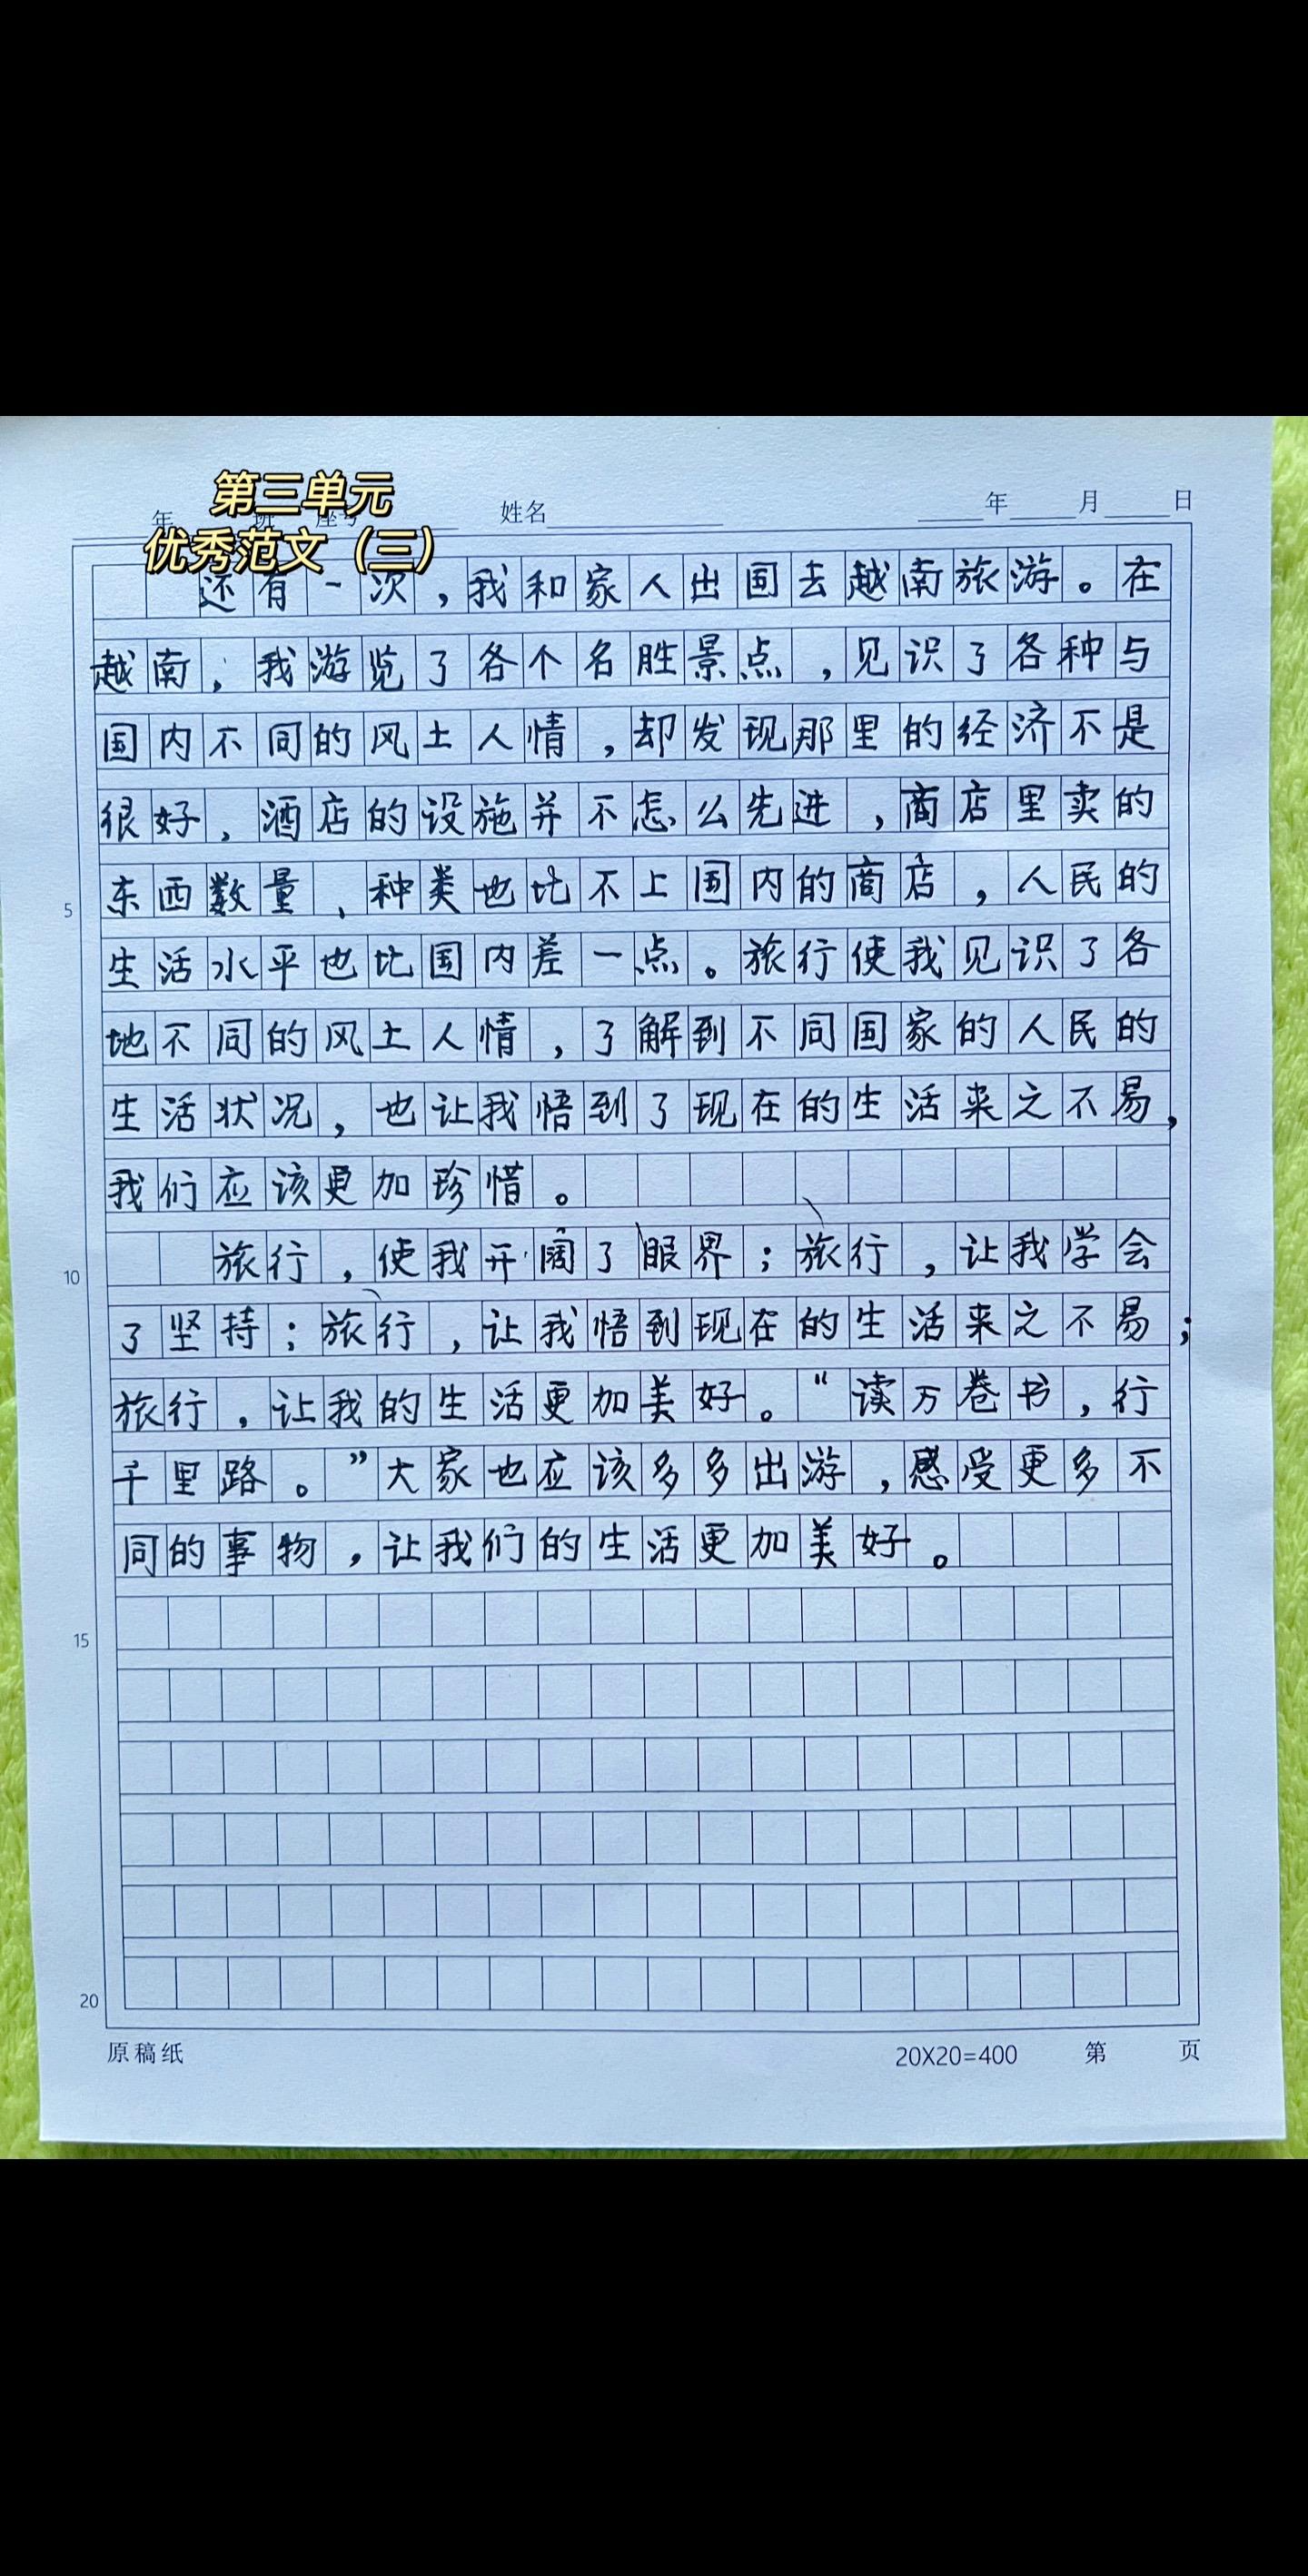 第三单元
优秀范文（三）
年 班 座号 姓名 年 月 日
还有一次，我和家人出国去越南旅游。在
越南，我游览了各个名胜景点，见识了各种与
国内不同的风土人情，却发现那里的经济不是
很好，酒店的设施并不怎么先进，商店里卖的
5
东西数量、种类也比不上国内的商店，人民的
生活水平也比国内差一点。旅行使我见识了各
地不同的风土人情，了解到不同国家的人民的
生活状况，也让我悟到了现在的生活来之不易，
我们应该更加珍惜。
10
旅行，使我开阔了眼界；旅行，让我学会
了坚持；旅行，让我悟到现在的生活来之不易；
旅行，让我的生活更加美好。“读万卷书，行
千里路。”大家也应该多多出游，感受更多不
同的事物，让我们的生活更加美好。
15
20
原稿纸 20X20=400 第 页